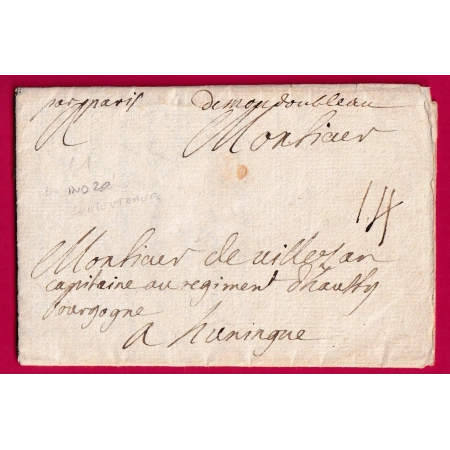 par paris demondoubleau
Monsieur
14
Monsieur de villersan
capitaine au regiment
bourgogne
a huningue